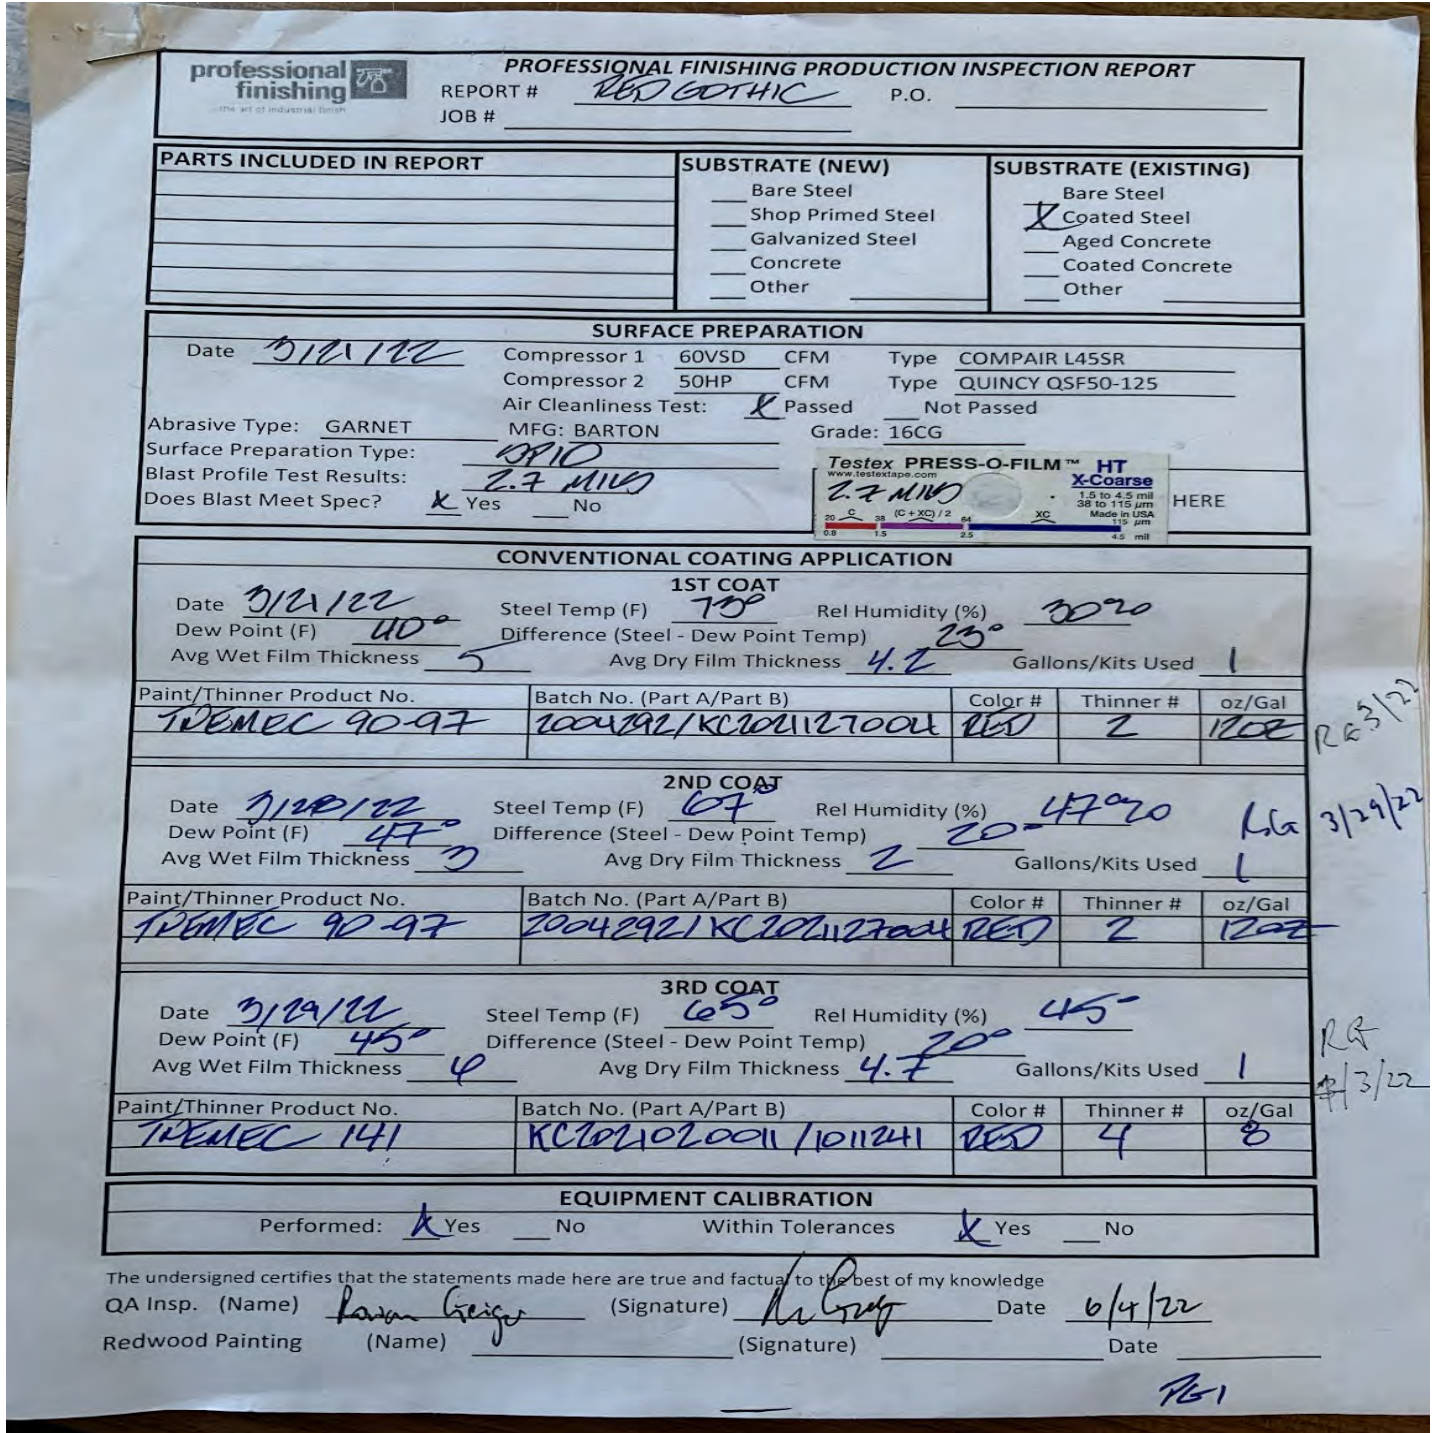 professional finishing
the art of industrial finish
PROFESSIONAL FINISHING PRODUCTION INSPECTION REPORT
REPORT # RED GOTHIC P.O.
JOB #
PARTS INCLUDED IN REPORT
SUBSTRATE (NEW)
Bare Steel
Shop Primed Steel
Galvanized Steel
Concrete
Other
SUBSTRATE (EXISTING)
Bare Steel
X Coated Steel
Aged Concrete
Coated Concrete
Other
SURFACE PREPARATION
Date 3/21/22 Compressor 1 60VSD CFM Type COMPAIR L45SR
Compressor 2 50HP CFM Type QUINCY QSF50-125
Air Cleanliness Test: X Passed Not Passed
Abrasive Type: GARNET MFG: BARTON Grade: 16CG
Surface Preparation Type: SP10
Blast Profile Test Results: 2.7 MILS
Does Blast Meet Spec? X Yes No
Testex PRESS-O-FILM™ HT
www.testextape.com X-Coarse
2.7 MILS 1.5 to 4.5 mil
38 to 115 µm
Made in USA
20 C 38 (C + XC) / 2 64 XC 115 µm
0.8 1.5 2.5 4.5 mil
HERE
CONVENTIONAL COATING APPLICATION
1ST COAT
Date 3/21/22 Steel Temp (F) 73° Rel Humidity (%) 30%
Dew Point (F) 40° Difference (Steel - Dew Point Temp) 23°
Avg Wet Film Thickness 5 Avg Dry Film Thickness 4.2 Gallons/Kits Used 1
Paint/Thinner Product No. Batch No. (Part A/Part B) Color # Thinner # oz/Gal
TNEMEC 90-97 2004292/KC2021127004 RED 2 12OZ
RG 3/22
2ND COAT
Date 3/28/22 Steel Temp (F) 67° Rel Humidity (%) 47%
Dew Point (F) 47° Difference (Steel - Dew Point Temp) 20°
RG 3/29/22
Avg Wet Film Thickness 3 Avg Dry Film Thickness 2 Gallons/Kits Used 1
Paint/Thinner Product No. Batch No. (Part A/Part B) Color # Thinner # oz/Gal
TNEMEC 90-97 2004292/KC2021127004 RED 2 12OZ
3RD COAT
Date 3/29/22 Steel Temp (F) 65° Rel Humidity (%) 45
Dew Point (F) 45° Difference (Steel - Dew Point Temp) 20°
Avg Wet Film Thickness 6 Avg Dry Film Thickness 4.7 Gallons/Kits Used 1
RG
/3/22
Paint/Thinner Product No. Batch No. (Part A/Part B) Color # Thinner # oz/Gal
TNEMEC 141 KC2021020011/1011241 RED 4 8
EQUIPMENT CALIBRATION
Performed: X Yes No Within Tolerances X Yes No
The undersigned certifies that the statements made here are true and factual to the best of my knowledge
QA Insp. (Name) (Signature) Date 6/4/22
Redwood Painting (Name) (Signature) Date
PG1